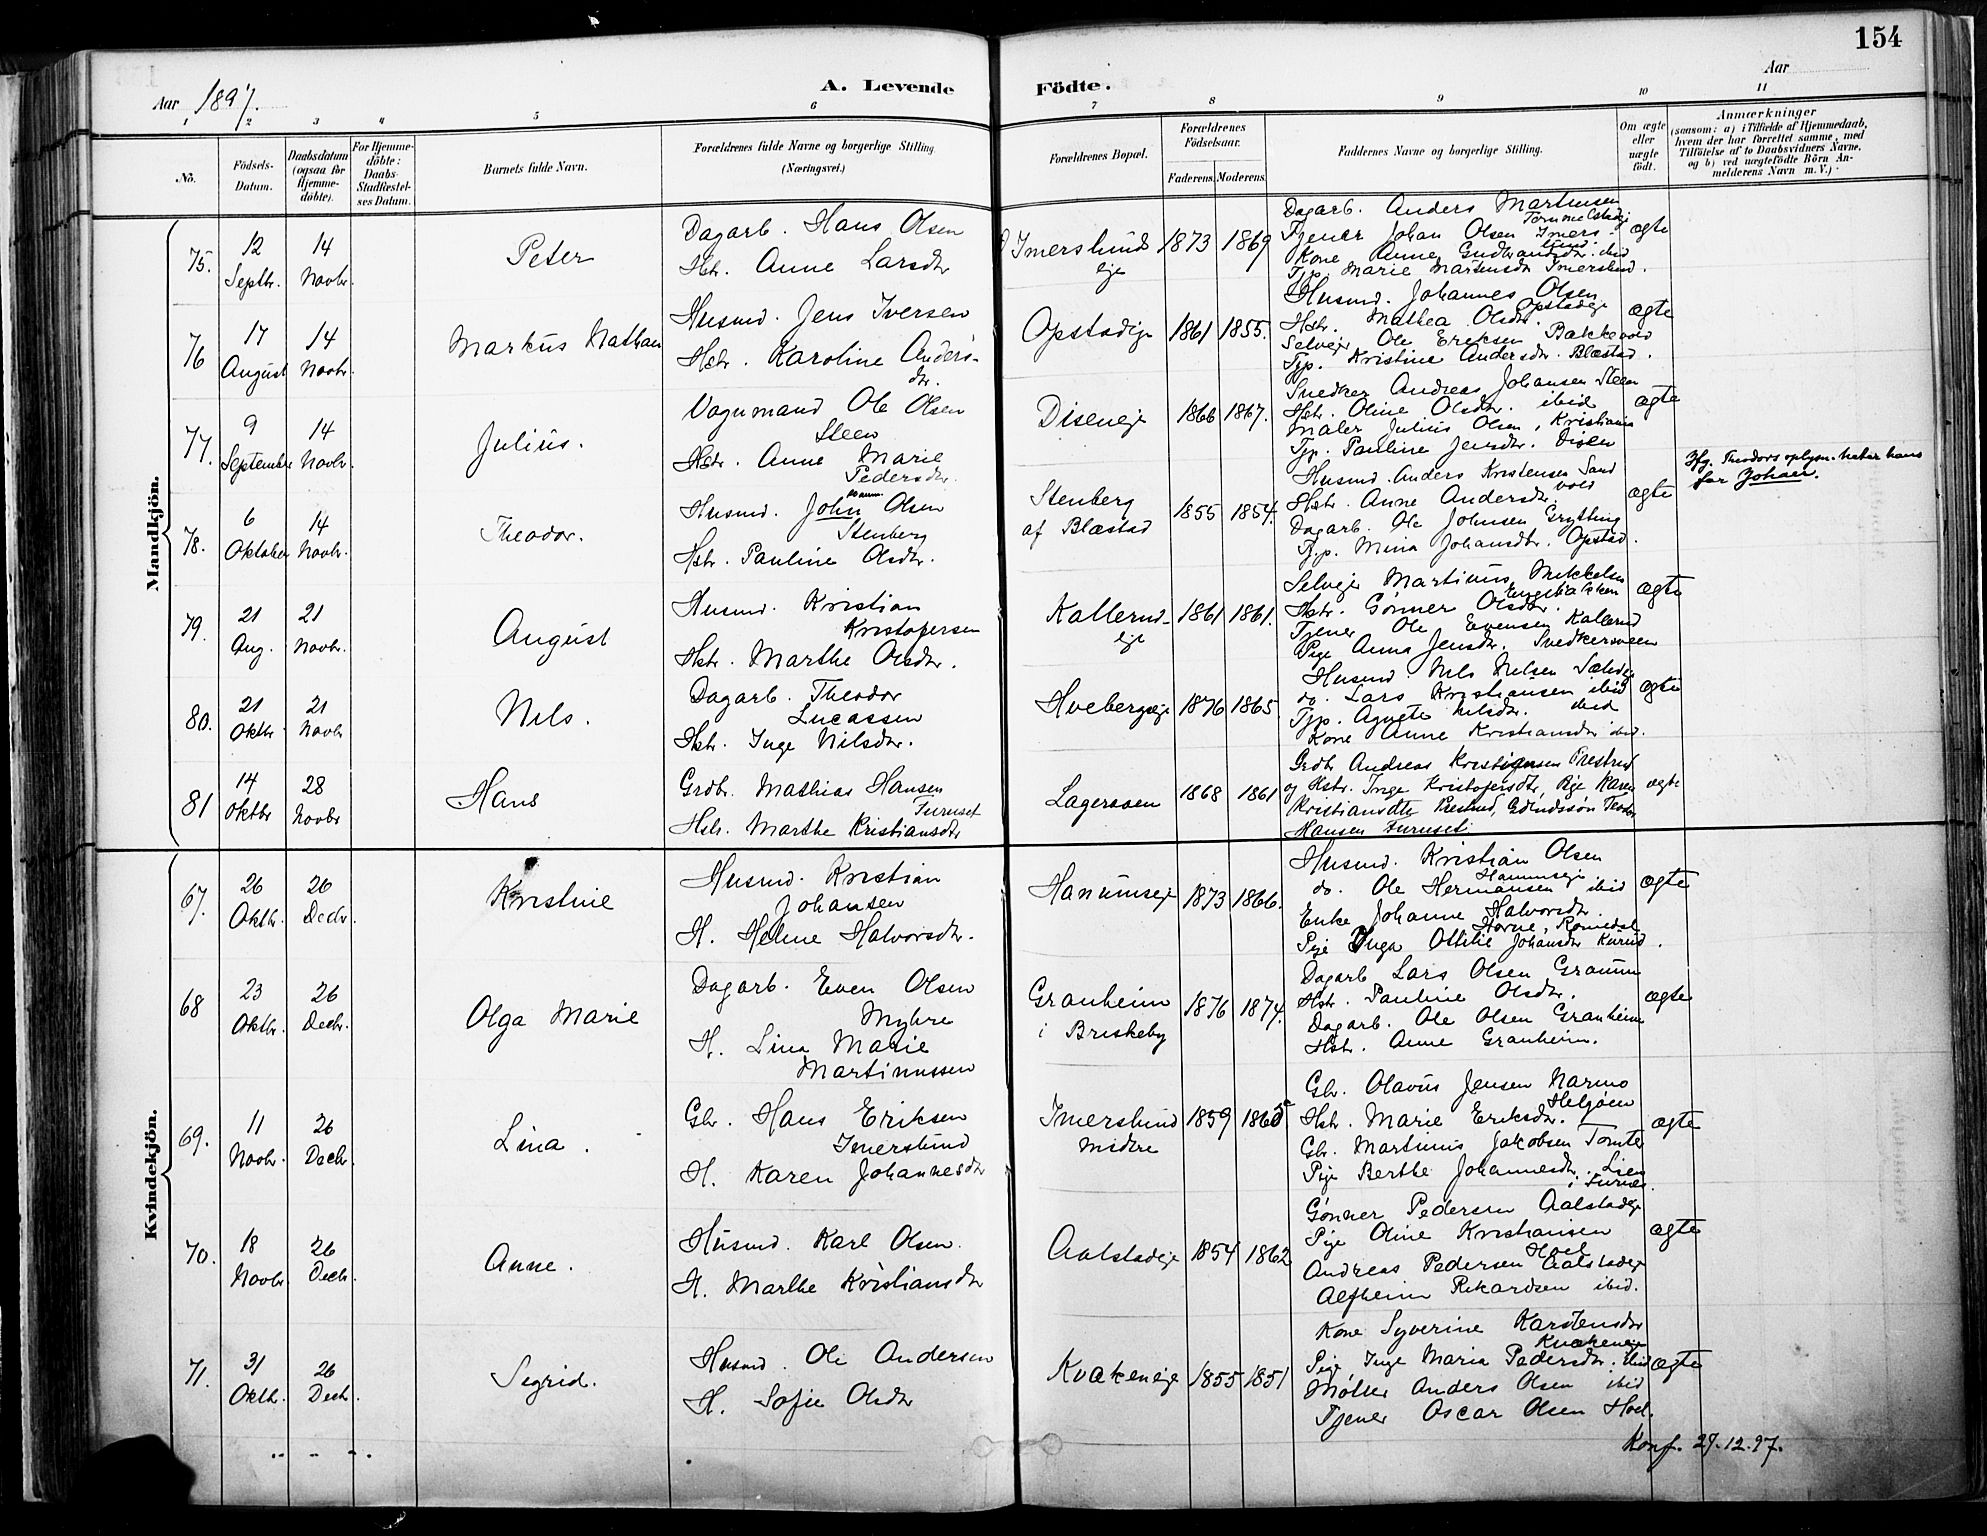 154
Aar 1897.
A. Levende Födte.
Aar
1 2 3 4 5 6 7 8 9 10 11
No.
Födsels-Datum.
Daabsdatum (ogsaa for Hjemme-döbte).
For Hjemme-döbte: Daabs-Stadfæstel-ses Datum.
Barnets fulde Navn.
Forældrenes fulde Navne og borgerlige Stilling (Næringsvei.)
Forældrenes Bopæl.
Forældrenes Födselsaar.
Faderens. Moderens.
Faddernes Navne og borgerlige Stilling.
Om ægte eller uægte födt.
Anmærkninger
(saasom: a) i Tilfælde af Hjemmedaab, hvem der har forrettet samme, med Tilföielse af to Daabsvidners Navne, og b) ved uægtefödte Börn An-melderens Navn m. V.)
Mandkjön.
75. 12 Septbr. 14 Novbr.
Peter
Dagarb. Hans Olsen
Hstr. Anne Larsdtr
Imerslundeje
1873 1869
Dagarb. Anders Martinsen
Tommelstadeje
Tjener Johan Olsen Imerslund.
Kone Anne Gudbrandsdtr. ibid
Tjp. Marie Martensdtr Imerslund.
ægte
76 17 August 14 Novbr.
Markus Nathan
Husmd. Jens Iversen
Hstr. Karoline Andersdtr.
Opstadeje
1861 1855.
Husmd. Johannes Olsen
Opstadeje
Hstr. Mathea Olsdtr.
Selvejer Ole Eriksen Bakkevold
Tjp. Kristine Andersdtr. Blæstad.
ægte
77. 9 September 14 Novbr.
Julius.
Vognmand Ole Olsen
Steen
Hstr. Anne Marie
Pedersdtr.
Diseneje
1866 1867.
Snedker Andreas Johansen Steen
Hstr. Oline Olsdtr. ibid
Maler Julius Olsen, Kristiania
Tjp. Pauline Jensdtr. Disen
ægte
78. 6 Oktober 14 Novbr.
Theodor.
Husmd. John Olsen
Stenberg
Hstr. Pauline Olsdtr.
Stenberg
af Blæstad
1855 1854.
Husmd. Anders Kristensen Sandvold
Hstr. Anne Andersdtr.
Dagarb. Ole Johnsen Grytting
Tjp. Mina Johansdtr. Opstad.
ægte
Ifg. Theodors oplysn. heter hans
far Johan.
79. 21 Aug. 21 Novbr.
August
Husmd. Kristian
Kristofersen
Hstr. Marthe Olsdtr.
Kallerudeje
1861 1861.
Selvejer Martinus Mikkelsen
Hstr. Gønner Olsdtr.
Tjener Ole Evensen Kallerud
Pige Anna Jensdtr. Snedkersveen
ægte
80. 21 Oktbr. 21 Novbr
Nils.
Dagarb. Theodor
Lucassen
Hstr. Inge Nilsdtr.
Hvebergseje
1876 1865.
Husmd. Nils Nilsen
do. Lars Kristiansen ibid
Tjp. Agnete Nilsdtr. ibid
Kone Anne Kristiansdtr ibid.
ægte
81 14 Oktbr 28 Novbr
Hans
Grdbr. Mathias Hansen
Furuset
Hstr. Marthe Kristiansdtr
Lagersveen
1868 1861
Grdbr Andreas Kristiansen Prestrud
og Hstr. Inge Kristofersdtr, Pige Karen
Kristiansdtr Prestrud, Grdmdssøn
Hansen Furuset.
ægte
Kvindekjön.
67. 26 Oktbr. 26 Decbr.
Kristine
Husmd. Kristian
Johansen
H. Helene Halvorsdtr.
Hanumseje
1873 1866.
Husmd. Kristian Olsen
Hanumseje
do. Ole Hermansen ibid
Enke Johanne Halvorsdtr.
Horne, Romedal
Pige Inga Ottilie Johansdtr Kurud.
ægte
68 23 Oktbr. 26 Decbr.
Olga Marie
Dagarb. Even Olsen
Myhre
H. Lina Marie
Martinussen
Granheim
i Briskeby
1876 1874.
Dagarb Lars Olsen Graum
Hstr. Pauline Olsdtr.
Dagarb. Ole Olsen Granheim
Hstr. Anne Granheim.
ægte
69. 11 Novbr. 26 Decbr.
Lina.
Gbr. Hans Eriksen
Imerslund
H. Karen Johannesdtr
Imerslund
midtre
1859
Gbr. Olavus Jensen Narmo
Helgøen
Hstr. Marie Eriksdtr.
Gbr. Martinus Jakobsen Tomter
Pige Berthe Johannesdtr. Lien
i Furnes.
ægte
70. 18 Novbr. 26 Decbr.
Anne.
Husmd. Karl Olsen.
H. Marthe Kristiansdtr
Aalstadeje
1854 1862
Gønner Pedersen Aalstadeje
Pige Oline Kristiansen
Hoel
Andreas Pedersen Aalstadeje
Alfheim Rikardsen ibid.
ægte
71. 31 Oktbr. 26 Decbr.
Segrid.
Husmd. Ole Andersen
H. Sofie Olsdtr
Kvækeneje
1855 1851
Kone Syverine Karstensdtr
Kvækeneje
Pige Inge Maria Pedersdtr. ibid
Møller Anders Olsen ibid
Tjener Oscar Olsen Hoel.
ægte
Konf. 29.12.97.